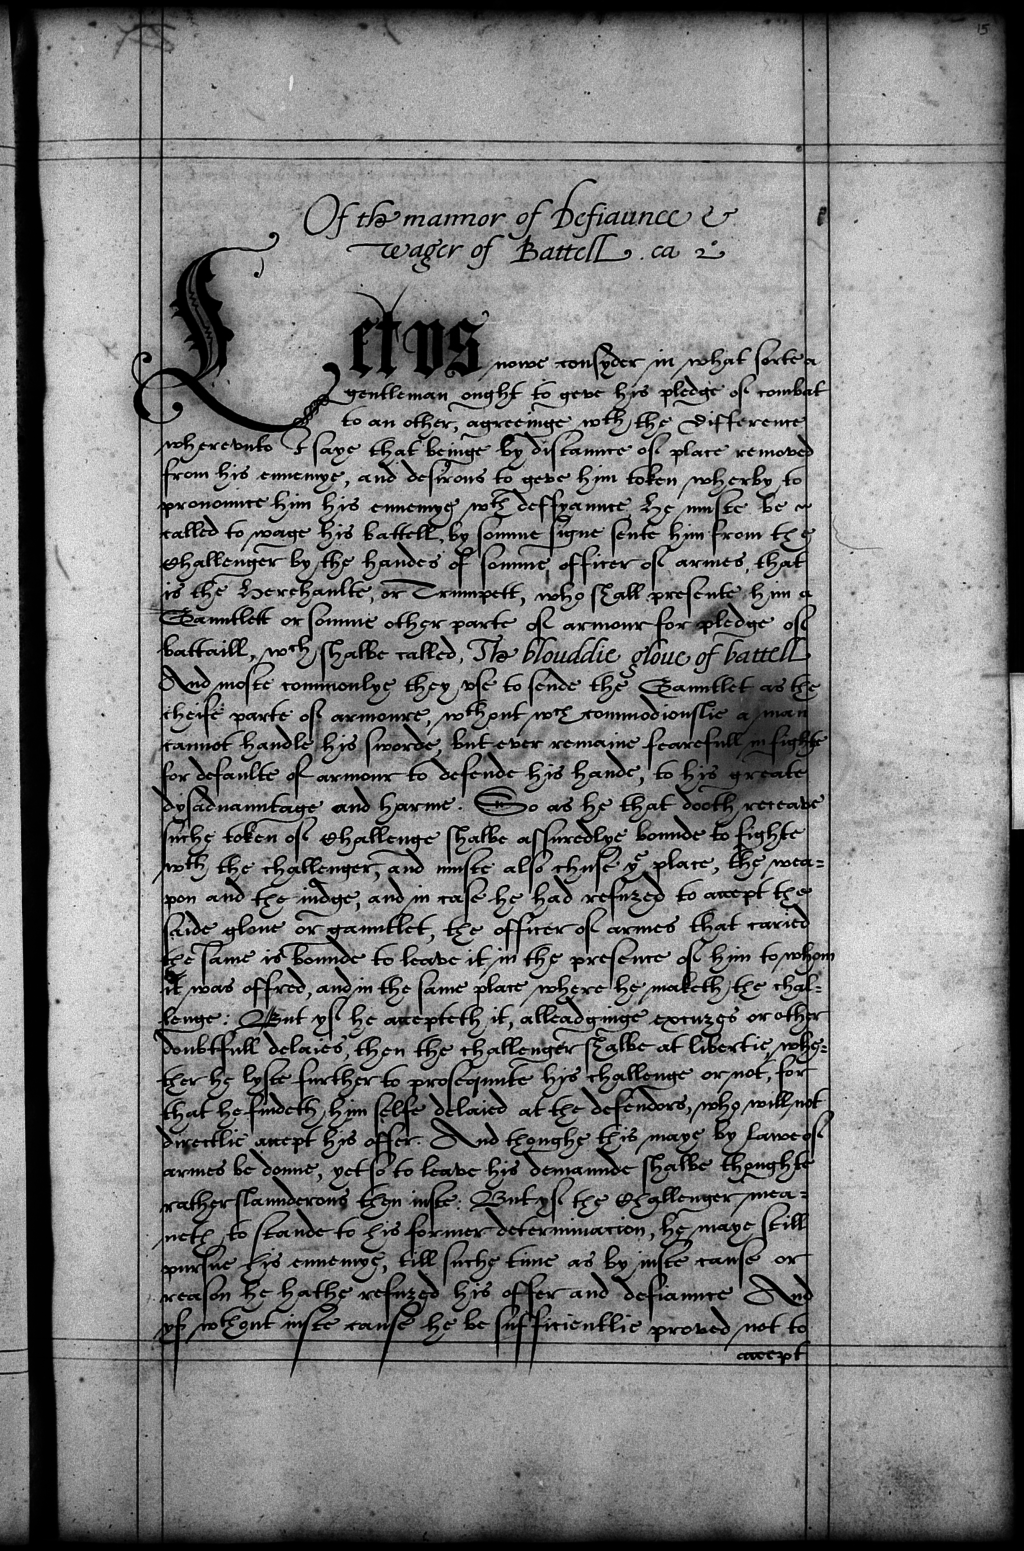 15
Of the mannor of Defiaunce &
wager of Battell . ca 2.
Let vs nowe consyder in what sorte a
gentleman ought to geve his pledge of combat
to an other, agreeinge wth the difference
wherevnto I saye that beinge by distaunce of place removed
from his ennemye, and desirous to geve him token wherby to
pronounce him his ennemye wth deffyaunce he muste be
called to wage his battell, by somme signe sente him from the
Challenger by the handes of somme officer of armes, that
is the Herehaulte, or Trumpett, who shall presente him a
Gauntlett or somme other parte of armour for pledge of
battaill, wch shalbe called, The blouddie gloue of battell
And moste commonlye they vse to sende the Gauntlet as the
cheife parte of armoure, wthout wch commodiouslie a man
cannot handle his sworde, but ever remaine fearefull in fighte
for defaulte of armour to defende his hande, to his greate
dysadvauntage and harme. So as he that dooth receave
suche token of Challenge shalbe assuredlye bounde to fighte
wth the challenger, and muste also chuse ye place, the wea=
pon and the iudge, and in case he had refuzed to accept the
saide gloue or gauntlet, the officer of armes that caried
the same is bounde to leave it in the presence of him to whom
it was offred, and in the same place where he maketh the chal=
lenge: But yf he accepteth it, alleadginge excuzes or other
doubtfull delaies, then the challenger shalbe at libertie, whe=
ther he lyste further to prosequute his challenge or not, for
that he findeth him selfe delaied at the defendors, who will not
directlie accept his offer. And thoughe this maye by Lawe of
armes be donne, yet so to leave his demaunde shalbe thoughte
rather slaunderous then iuste. But yf the Challenger mea=
neth to stande to his former determinacion, he maye still
pursue his ennemye, till suche time as by iuste cause or
reason he hathe refuzed his offer and defiaunce And
yf wthout iuste cause he be sufficientlie proved not to
accept